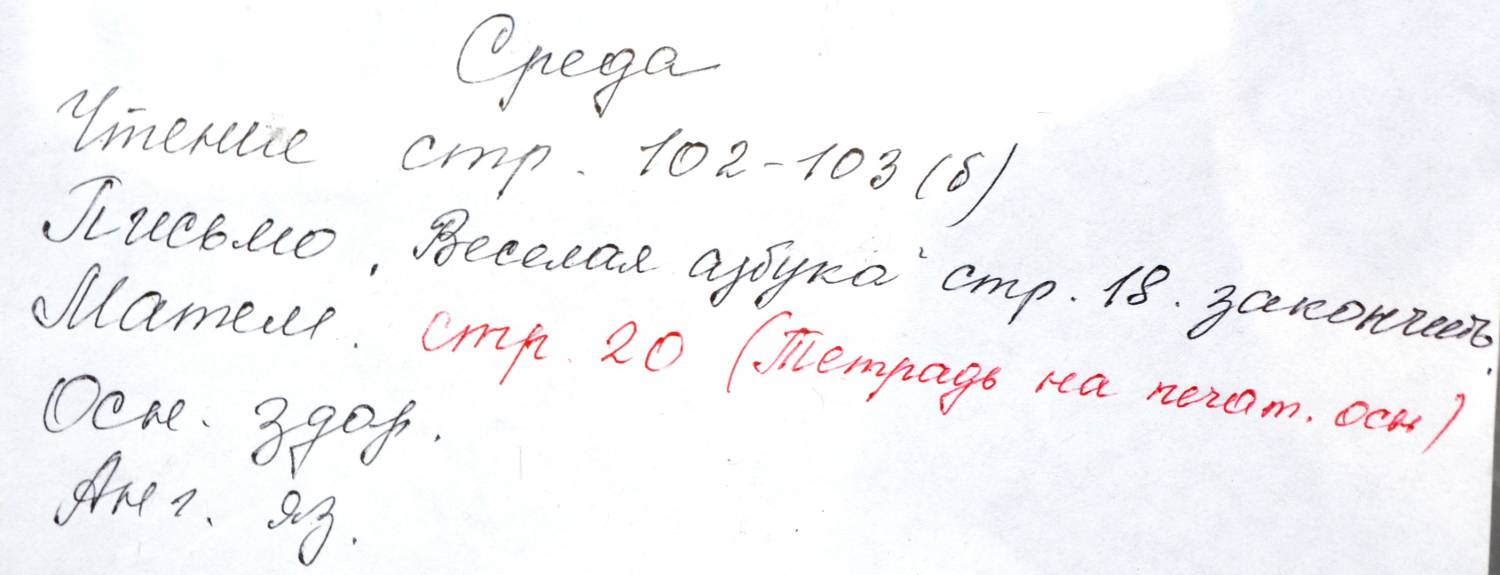 Среда
Чтение стр. 102-103 (б)
Письмо „Веселая азбука“ стр. 18. закончить.
Матем. стр. 20 (Тетрадь на печат. осн)
Осн. здор.
Анг. яз.